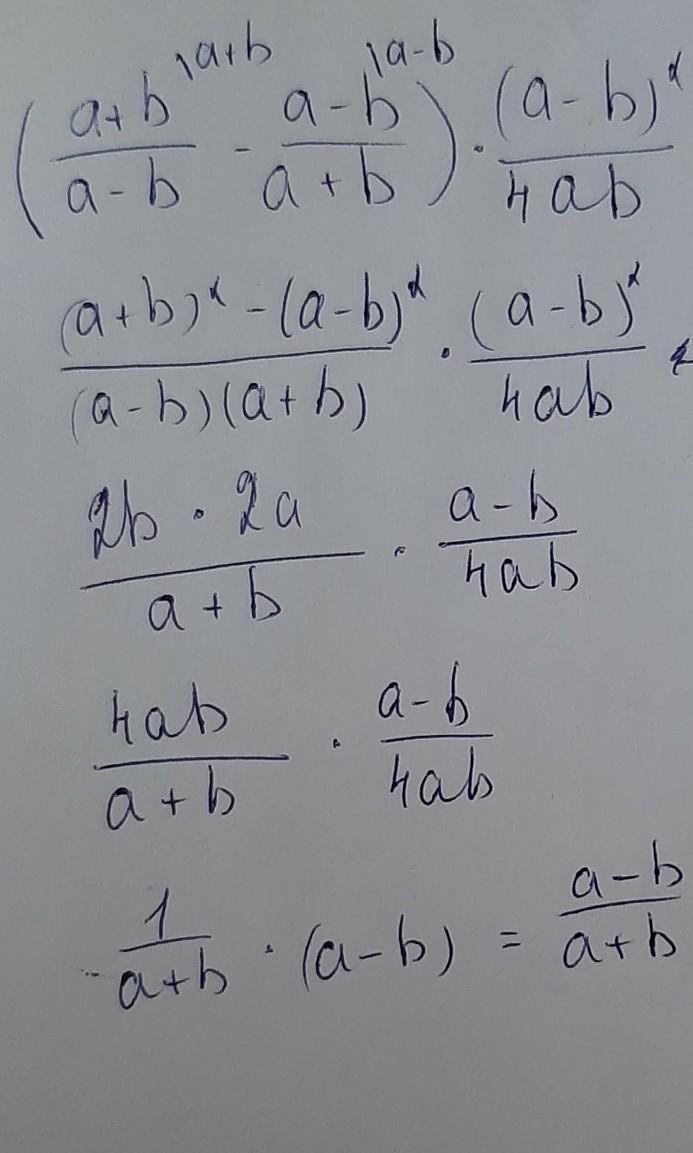 \( \left( \frac{a+b}{a-b}^{\backslash a+b} - \frac{a-b}{a+b}^{\backslash a-b} \right) \cdot \frac{(a-b)^2}{4ab} \)
\( \frac{(a+b)^2 - (a-b)^2}{(a-b)(a+b)} \cdot \frac{(a-b)^2}{4ab} \)
\( \frac{2b \cdot 2a}{a+b} \cdot \frac{a-b}{4ab} \)
\( \frac{4ab}{a+b} \cdot \frac{a-b}{4ab} \)
\( \frac{1}{a+b} \cdot (a-b) = \frac{a-b}{a+b} \)